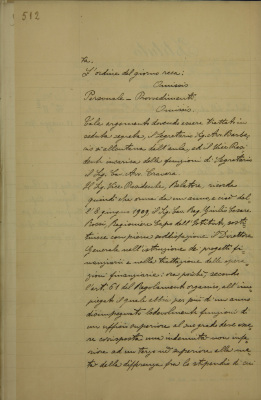 512
ta.
L'ordine del giorno reca:
Omissis
Personale - Provvedimenti
Omissis
Tale argomento dovendo essere trattato in
seduta segreta, il Segretario Sig. Avv. Barbe
si allontana dall'aula, ed il Vice Presi
dente incarica delle funzioni di Segretario
il Sig. Avv.
Il Sig. Vice Presidente, Relatore, ricorda
quindi che ormai da un anno, e cioè dal
l' 8 giugno 1909, il Sig. Rag. Giulio Cesare
Ragioniere Capo dell'Istituto, sosti
tuisce con piena soddisfazione il Direttore
Generale nell'istruzione dei progetti fi
nanziari e nella trattazione delle opera
zioni finanziarie: ora poichè, secondo
l'art. 61 del Regolamento organico, all'im
piegato il quale abbia per più di un anno
disimpegnato lodevolmente funzioni di
un ufficio superiore al suo grado deve esse
re corrisposta una indennità non infe
riore ad un terzo nè superiore alla me
tà della differenza fra lo stipendio di cui